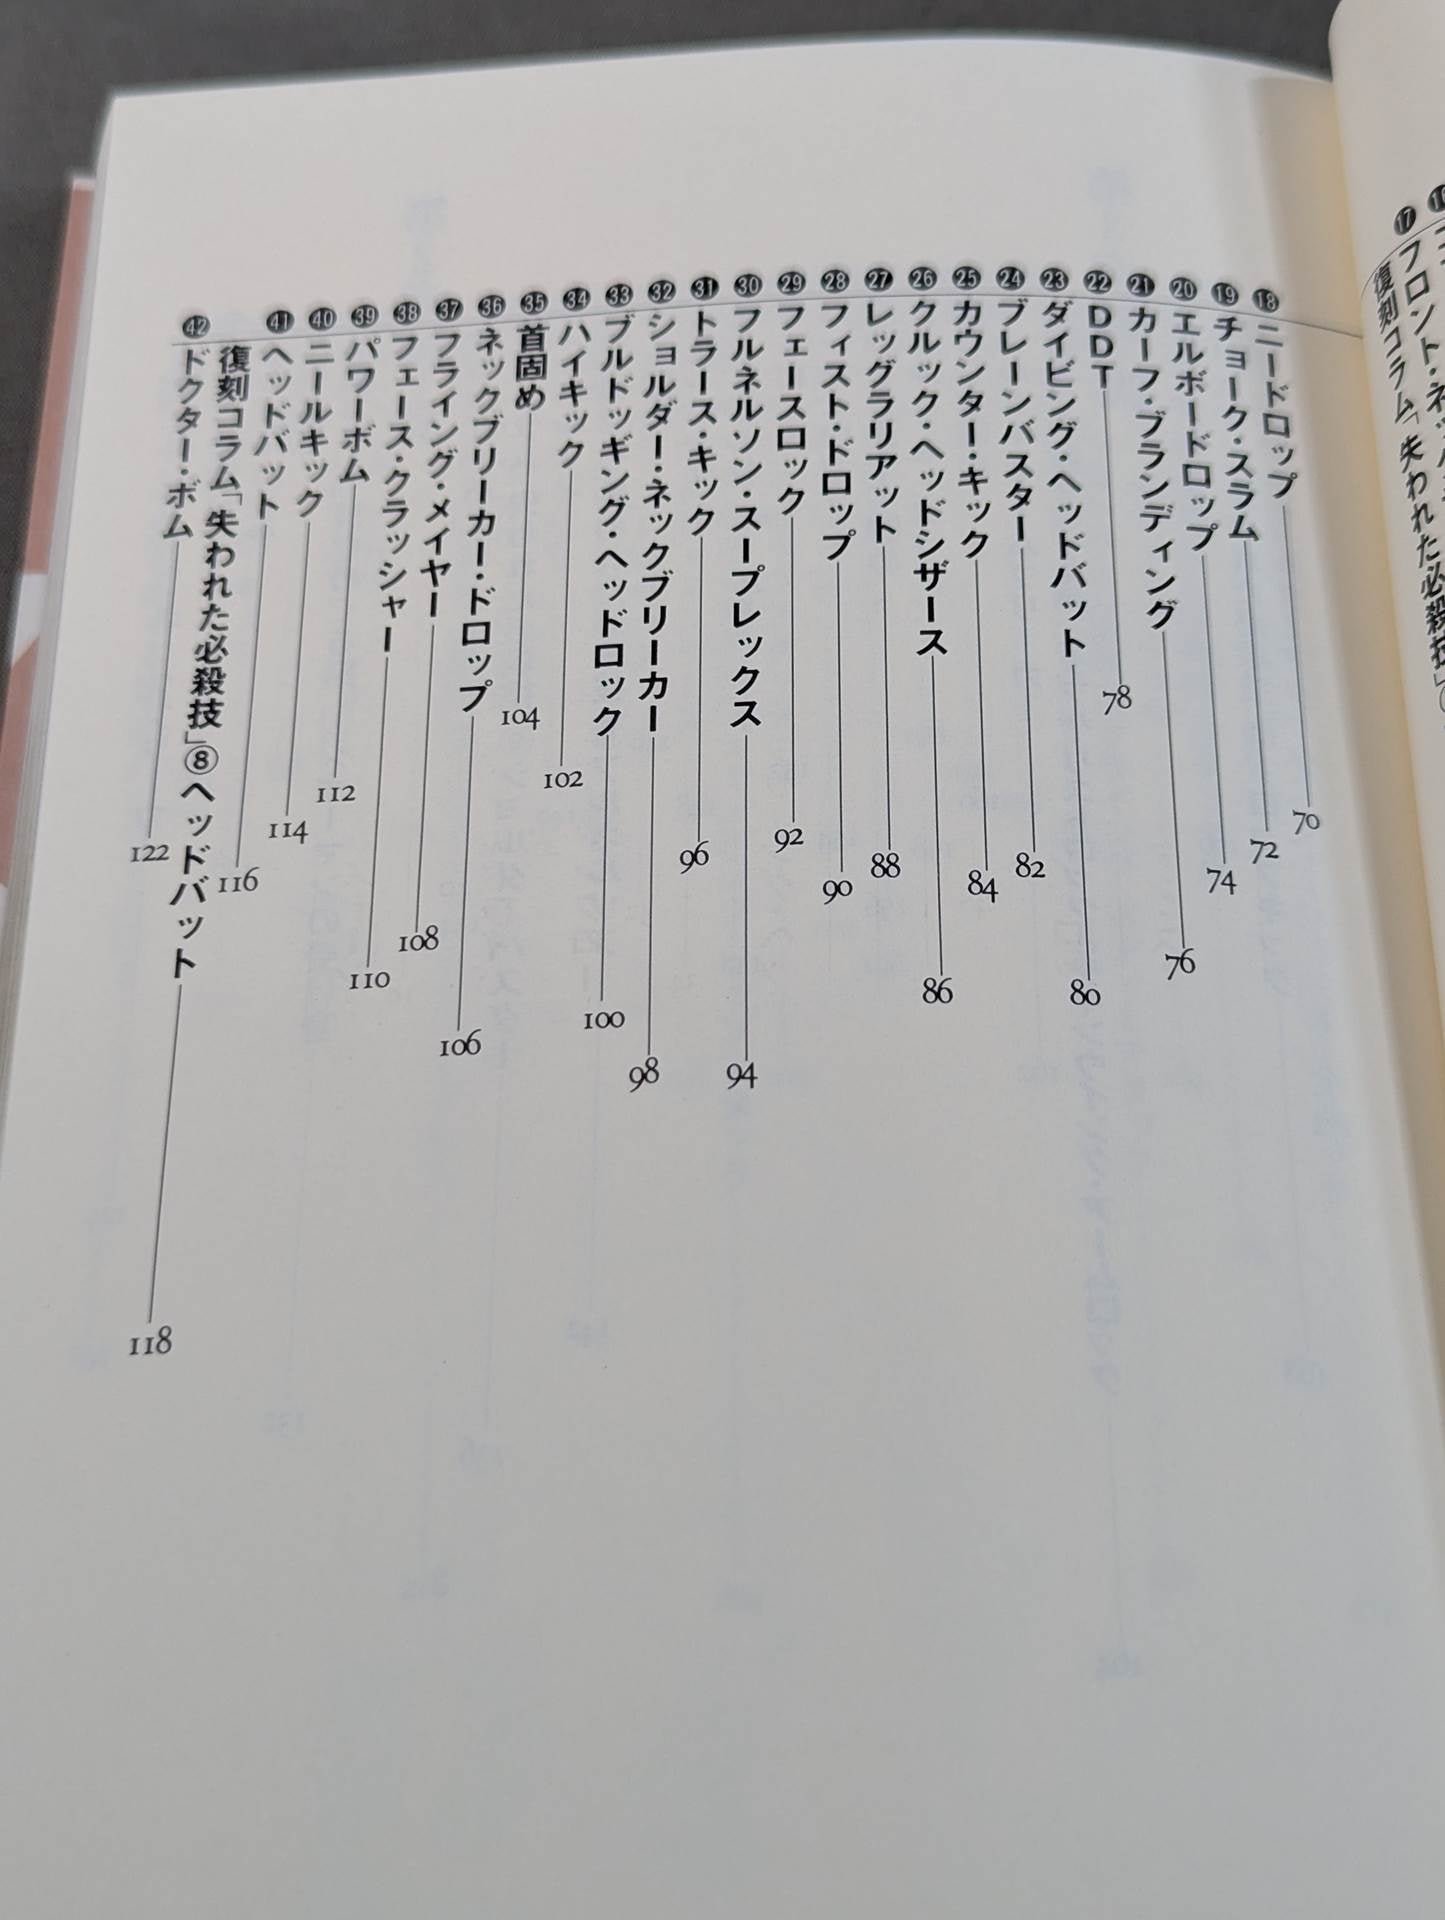 ⓱フロント・ネッ
復刻コラム「失われた必殺技」
⓲ニードロップ 70
⓳チョーク・スラム 72
⓴エルボードロップ 74
㉑カーフ・ブランディング 76
㉒DDT 78
㉓ダイビング・ヘッドバット 80
㉔ブレーンバスター 82
㉕カウンター・キック 84
㉖クルック・ヘッドシザース 86
㉗レッグラリアット 88
㉘フィスト・ドロップ 90
㉙フェースロック 92
㉚フルネルソン・スープレックス 94
㉛トラース・キック 96
㉜ショルダー・ネックブリーカー 98
㉝ブルドッギング・ヘッドロック 100
㉞ハイキック 102
㉟首固め 104
㊱ネックブリーカー・ドロップ 106
㊲フライング・メイヤー 108
㊳フェース・クラッシャー 110
㊴パワーボム 112
㊵ニールキック 114
㊶ヘッドバット 116
復刻コラム「失われた必殺技」⑧ヘッドバット 118
㊷ドクター・ボム 122